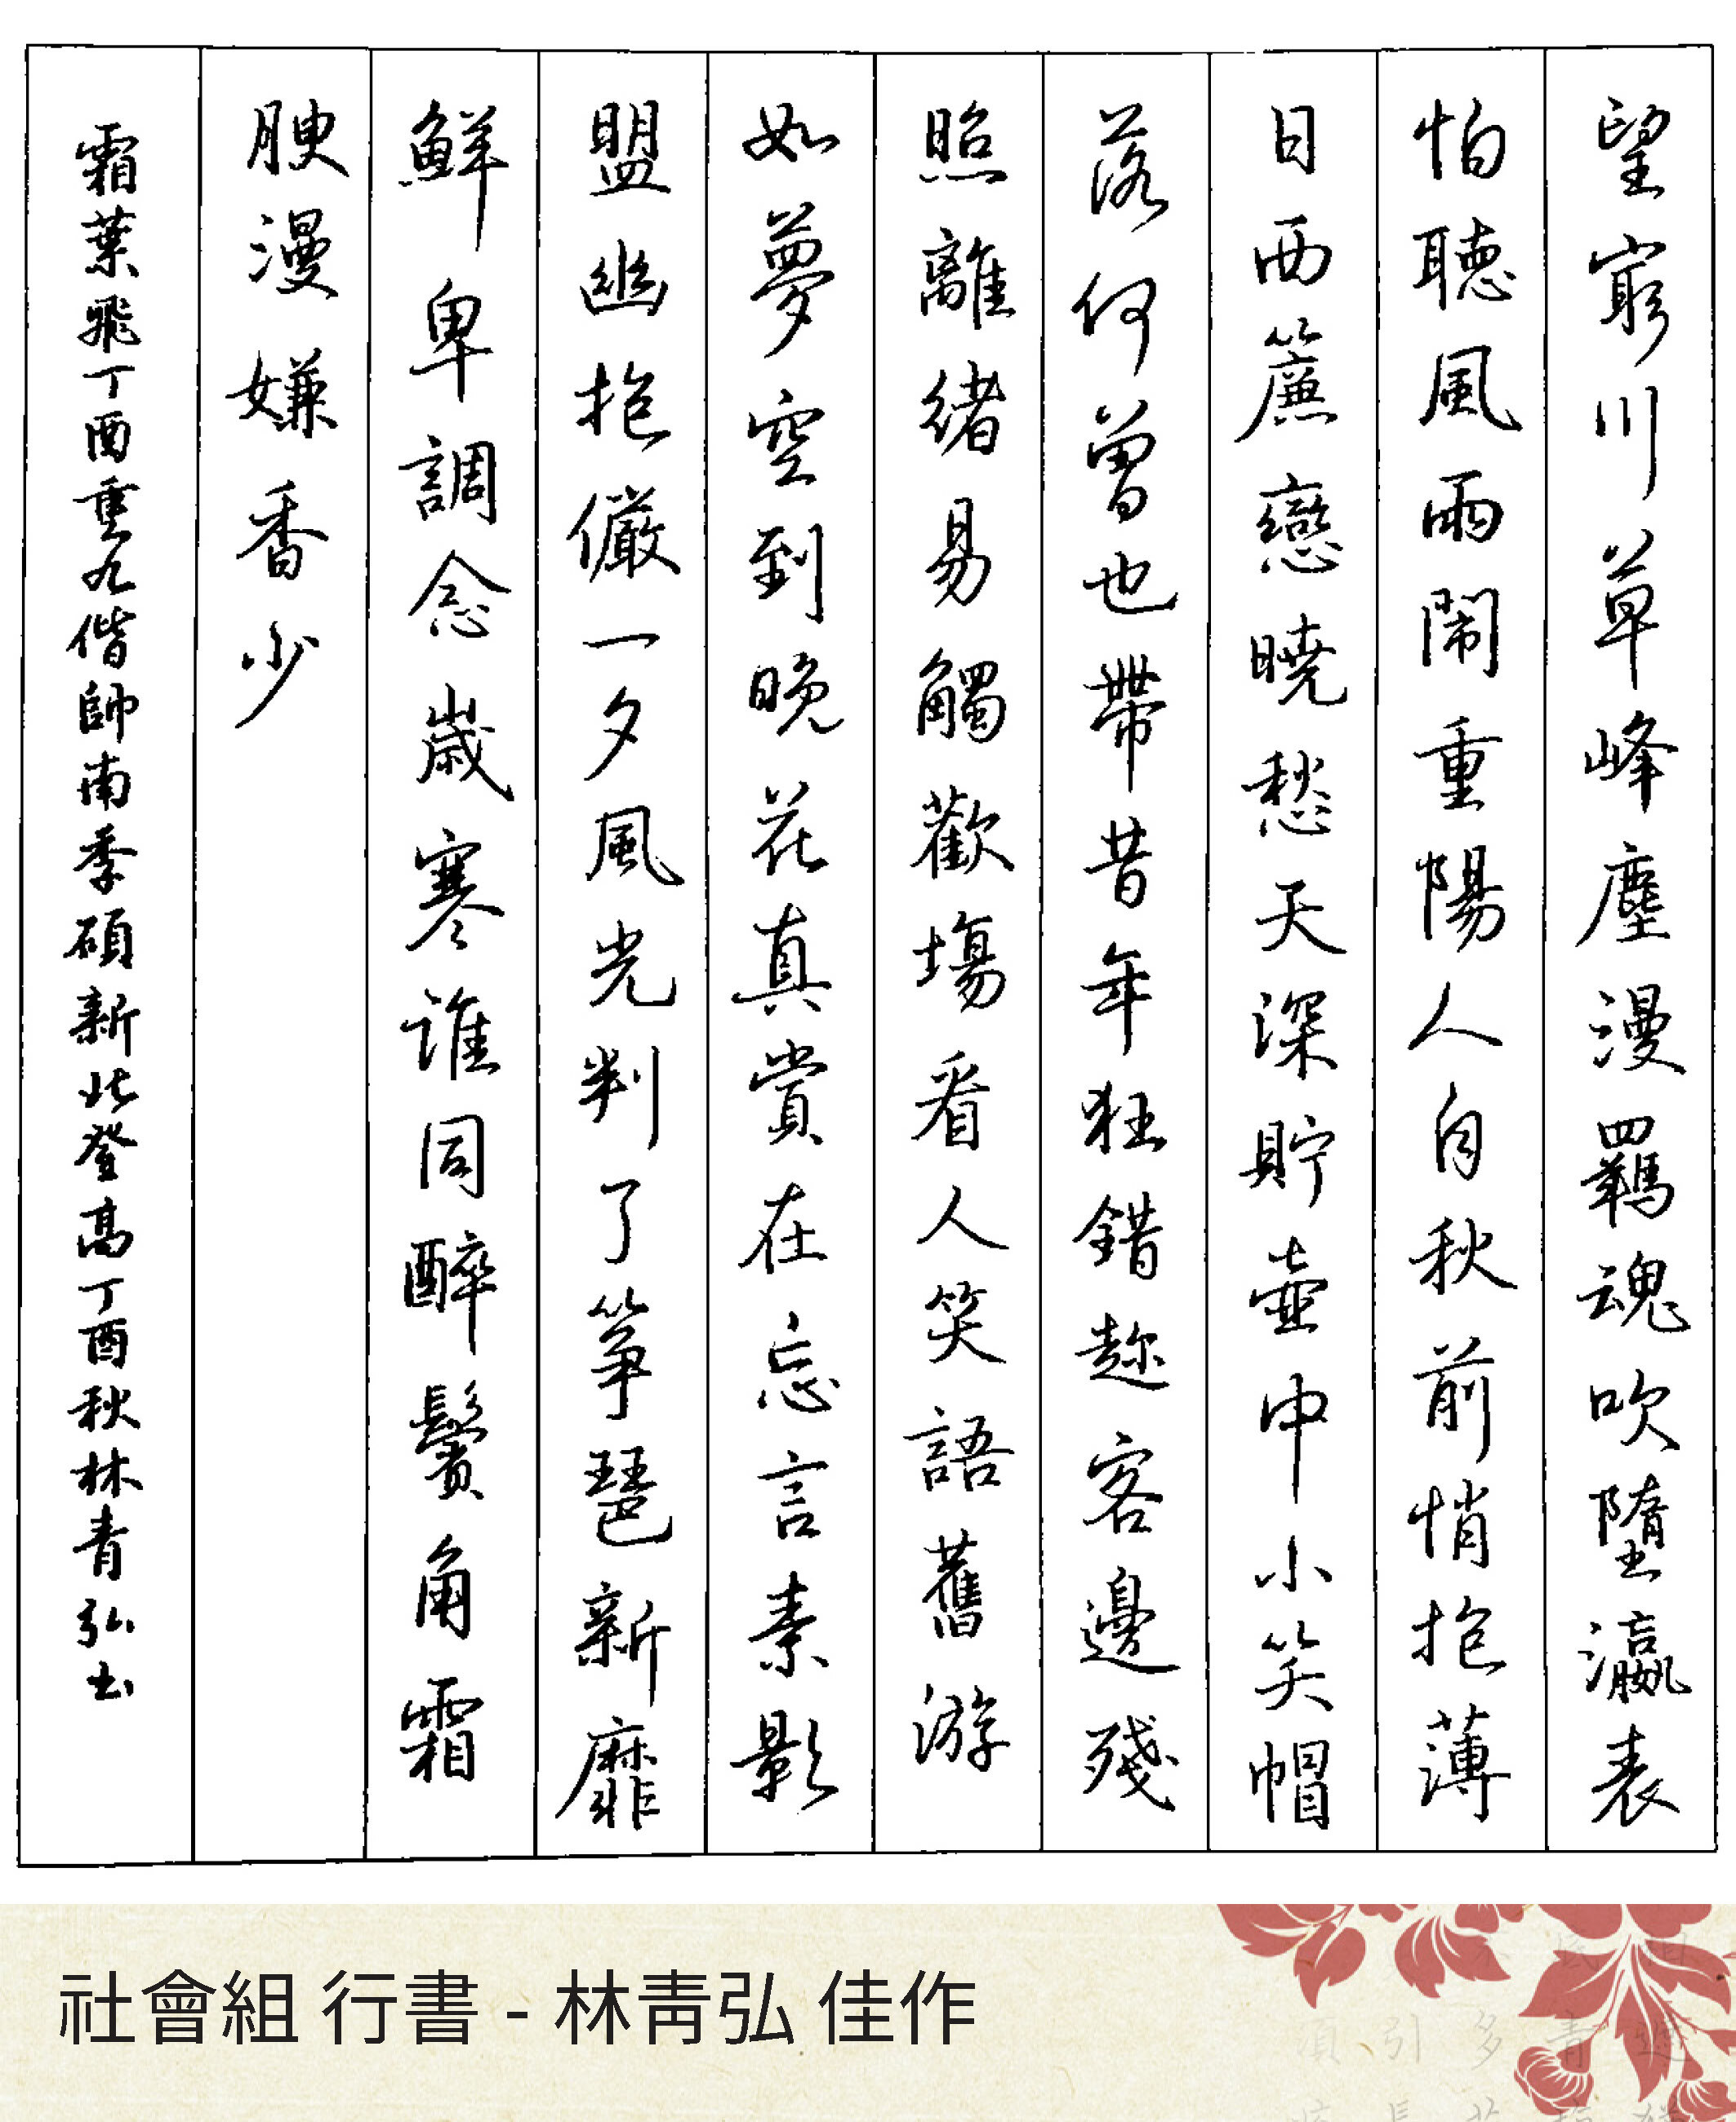 望窮川草峰塵漫羈魂吹墮瀛表
怕聽風雨鬧重陽人自秋前悄抱薄
日西簾戀曉愁天深貯壺中小笑帽
落何曾也帶昔年狂錯趁客邊殘
照離緒易觸歡場看人笑語舊游
如夢空到晚花真賞在忘言素影
盟幽抱儼一夕風光判了箏琶新靡
鮮卑調念歲寒誰同醉鬢角霜
腴漫嫌香少
霜葉飛丁酉重九偕帥南季碩新北登高丁酉秋林青弘書
社會組 行書 - 林青弘 佳作